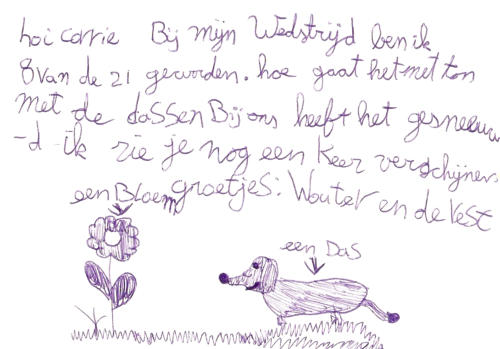 hoi corrie Bij mijn Wedstrijd ben ik
8 van de 21 geworden. hoe gaat het met ton
met de dassen Bij ons heeft het gesneeuw
-d ik zie je nog een keer verschijnen.
groetjes: Wouter en de rest
een Bloem
een Das